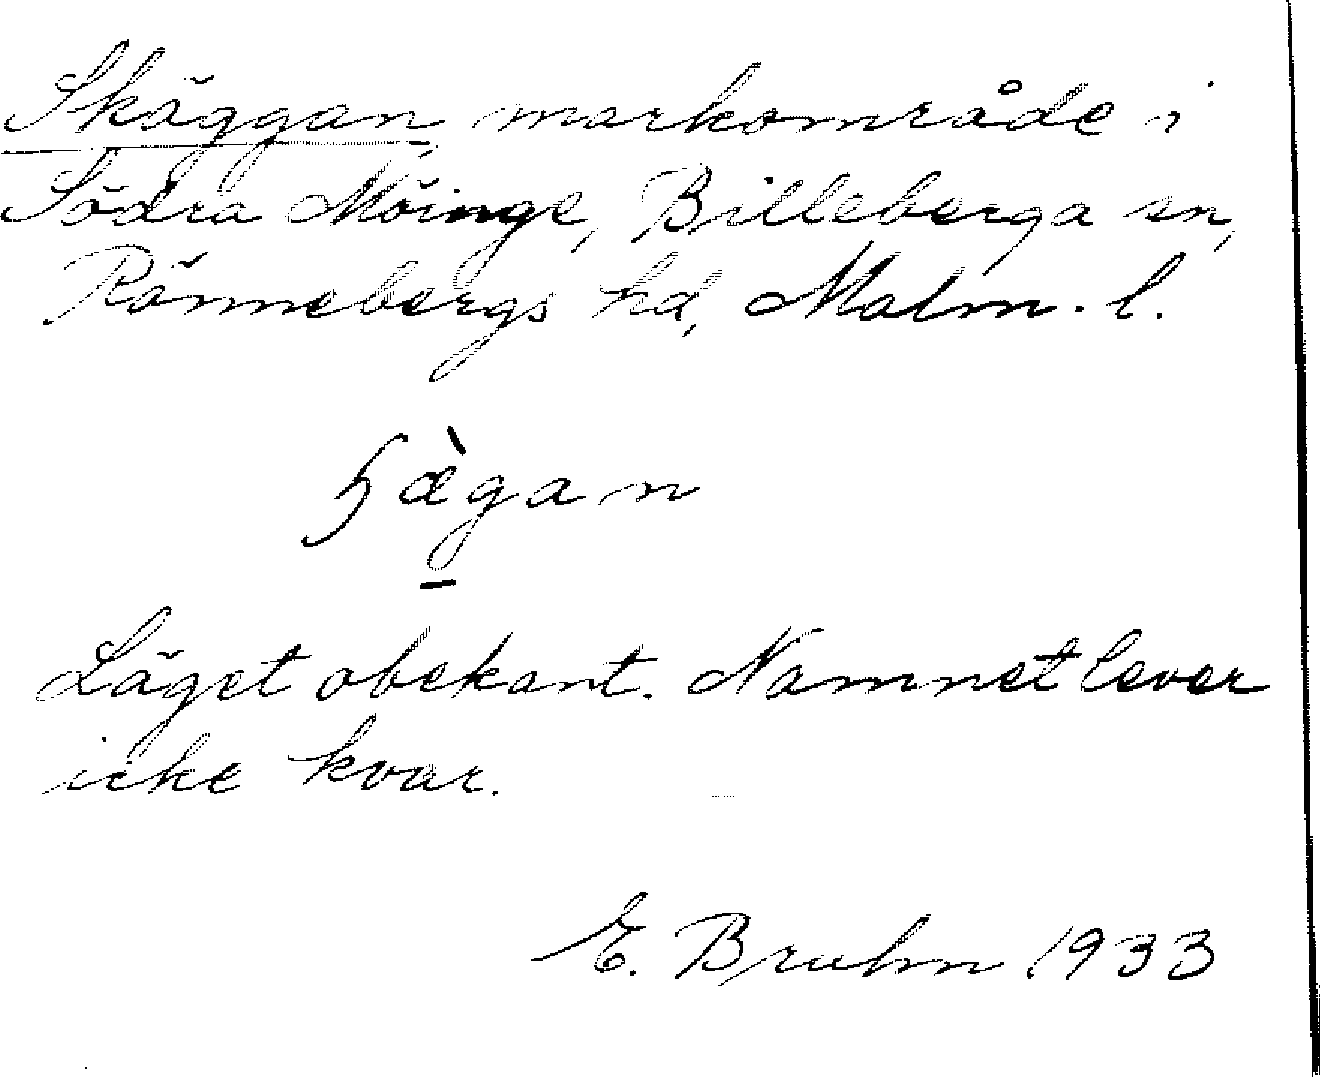 Skäggan, markområde i
Södra Möinge, Billeberga sn,
Rönnebergs hd, Malm. l.
ɧæ̀gan
Läget obekant. Namnet lever
icke kvar.
E. Bruhn 1933